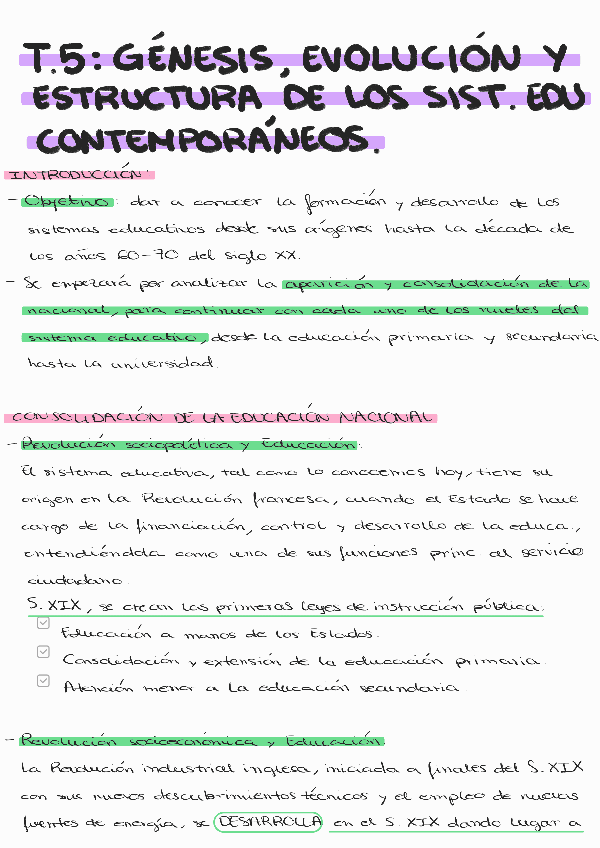 T.5: GÉNESIS, EVOLUCIÓN Y
ESTRUCTURA DE LOS SIST. EDU
CONTEMPORÁNEOS.
INTRODUCCIÓN:
- Objetivo: dar a conocer la formación y desarrollo de los
sistemas educativos desde sus orígenes hasta la década de
los años 60-70 del siglo XX.
- Se empezará por analizar la aparición y consolidación de la
nacional, para continuar con cada uno de los niveles del
sistema educativo, desde la educación primaria y secundaria
hasta la universidad.
CONSOLIDACIÓN DE LA EDUCACIÓN NACIONAL
- Revolución sociopolítica y Educación:
El sistema educativo, tal como lo conocemos hoy, tiene su
origen en la Revolución francesa, cuando el Estado se hace
cargo de la financiación, control y desarrollo de la educa.,
entendiéndola como una de sus funciones princ al servicio
ciudadano.
S. XIX, se crean las primeras leyes de instrucción pública:
Educación a manos de los Estados.
Consolidación y extensión de la educación primaria.
Atención menor a la educación secundaria
- Revolución socioeconómica y Educación:
La Revolución industrial inglesa, iniciada a finales del S. XIX
con sus nuevos descubrimientos técnicos y el empleo de nuevas
fuentes de energía, se DESARROLLA en el S. XIX dando lugar a